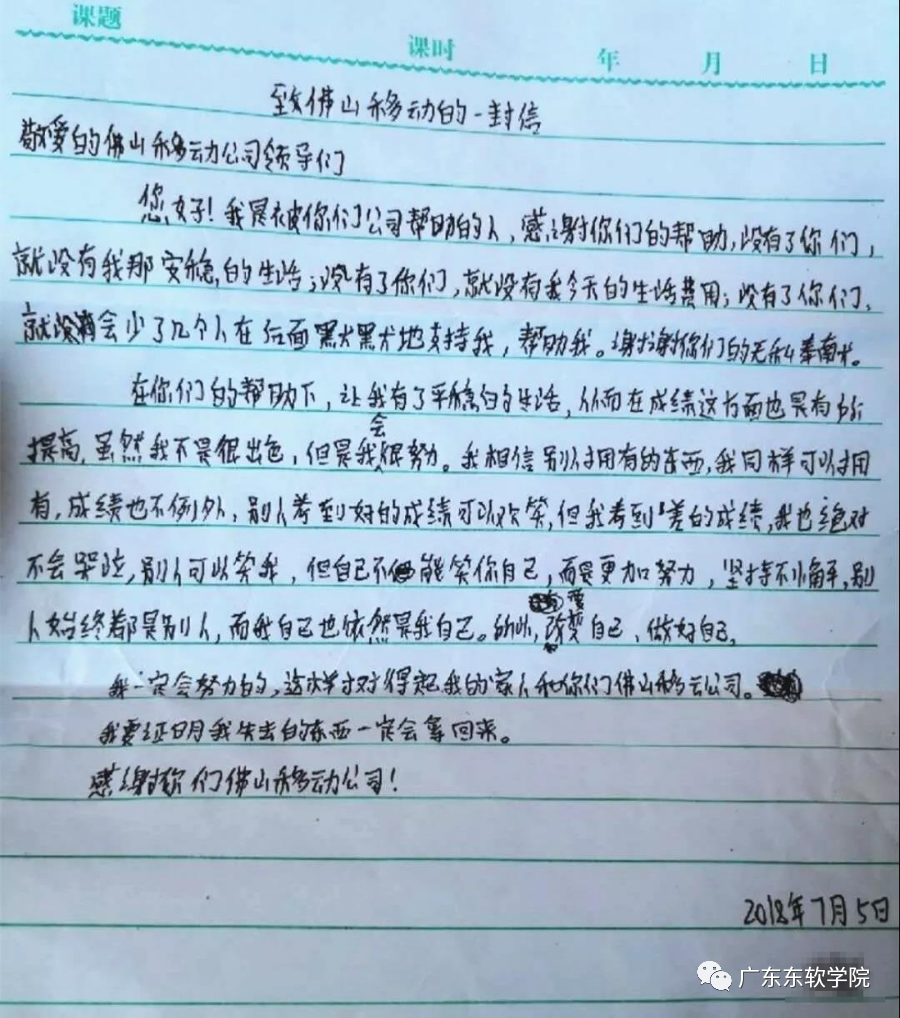 课题
课时 年 月 日
致佛山移动的一封信
敬爱的佛山移动公司领导们
您好！我是被你们公司帮助的人，感谢你们的帮助，没有了你们，
就没有我那安稳的生活；没有了你们，就没有我今天的生活费用；没有了你们，
就会少了几个人在后面默默地支持我，帮助我。谢谢你们的无私奉献。
在你们的帮助下，让我有了平稳的生活，从而在成绩这方面也是有所
提高，虽然我不是很出色，但是我会很努力。我相信别人拥有的东西，我同样可以拥
有，成绩也不例外，别人考到好的成绩可以欢笑，但我考到差的成绩，我也绝对
不会哭泣，别人可以笑我，但自己不能笑你自己，而是更加努力，坚持不懈，别
人始终都是别人，而我自己也依然是我自己。所以，要改变自己，做好自己，
我一定会努力的，这样才对得起我的家人和你们佛山移动公司。
我要证明我失去的东西一定会拿回来。
感谢你们佛山移动公司！
2018年7月5日
广东东软学院